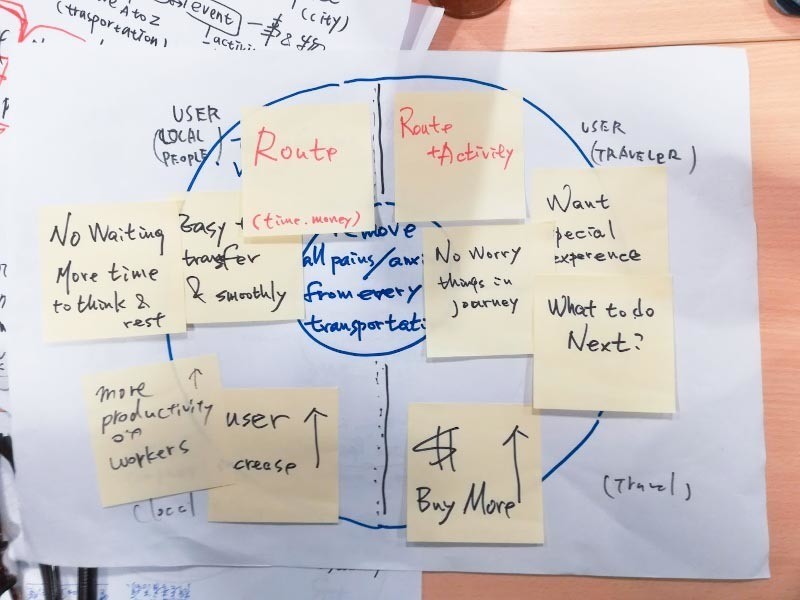 A to Z
(trasportation)
event
activi
(city)
$ &
USER
(LOCAL
PEOPLE)
Route
(time.money)
Route
+Activity
USER
(TRAVELER)
No Waiting
More time
to think &
rest
Easy +
transfer
& smoothly
remove
all pains/anxi
from every
transportati
No Worry
things in
journey
Want
pecial
experence
What to do
Next?
more ↑
productivity
on
workers
user ↑
crease
(local
$ ↑
Buy More
(Travel)